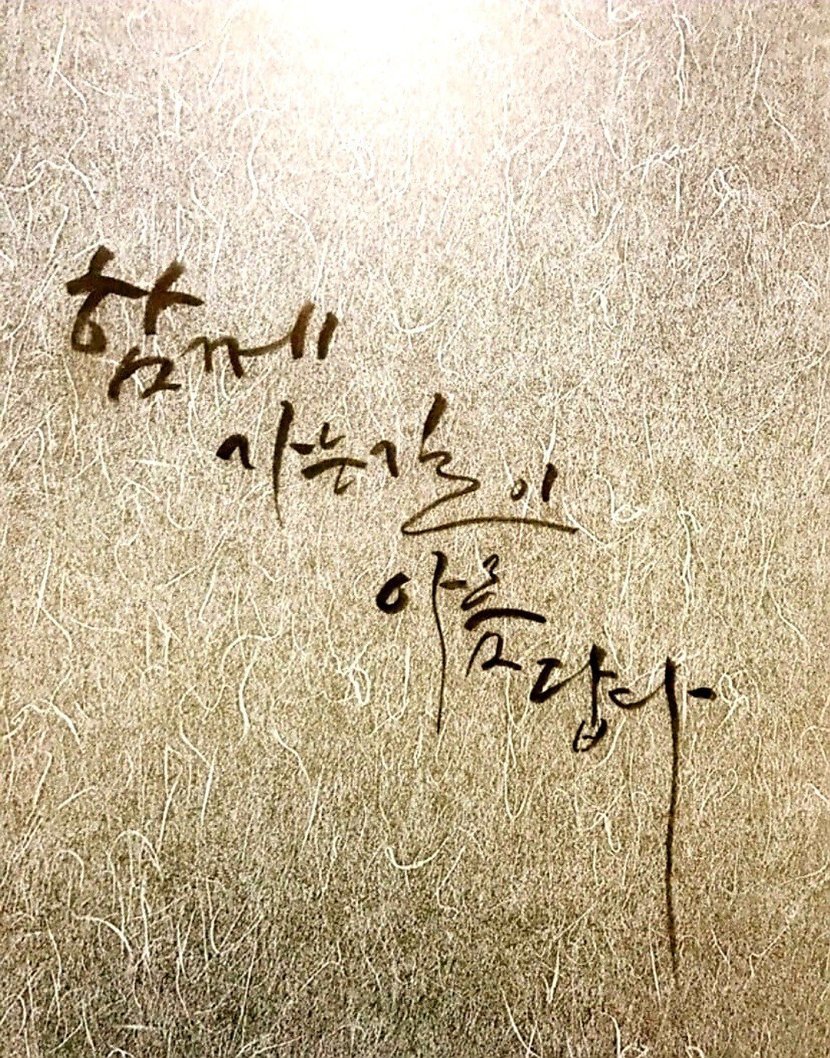 함께
가는길이
아름답다